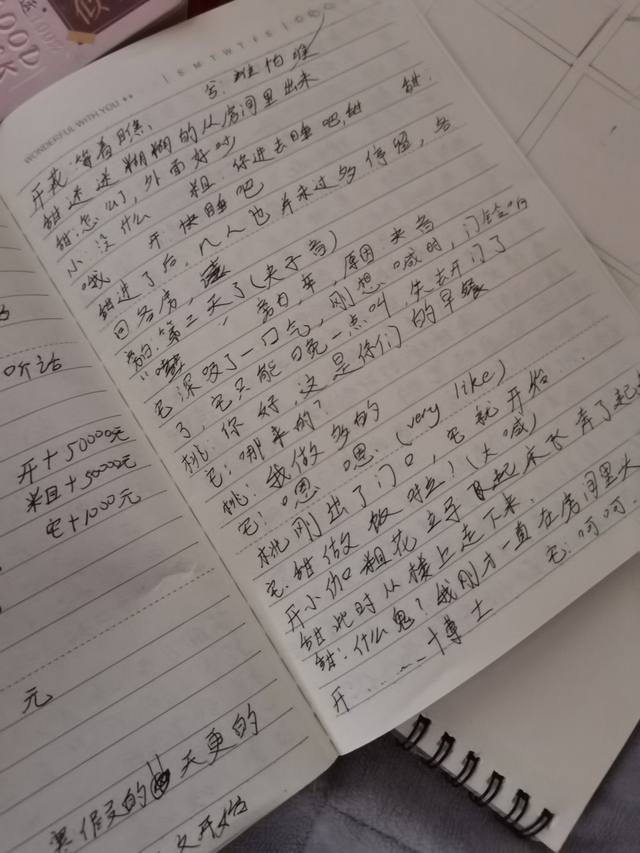 OOD
WONDERFUL WITH YOU
S M T W T F S
宅:谁怕谁
开花:等着瞧,
甜迷迷糊糊的从房间里出来
甜:怎么了,外面好吵
小:没什么 粗:你进去睡吧,甜 甜:
哦 开:快睡吧
甜进了后,几人也并未过多停留,各
回各房,
旁白:第二天了(夹子音)
宅深吸了一口气,刚想喊时,门铃响
了,宅只能晚一点叫,先去开门了
桃:你好,这是你们的早餐
宅:哪来的?
桃:我做多的
宅:嗯嗯(very like)
桃刚出了门口,宅就开始...
宅:甜做饭啦!(大喊)
开小伽粗花立马飞起来飞奔了起
甜此时从楼上走下来.
甜:什么鬼?我刚才一直在房间里
宅:呵呵.
开......
听话
开+50000元
粗+50000元
宅+1000元
元
寒假的 天更的
文开始